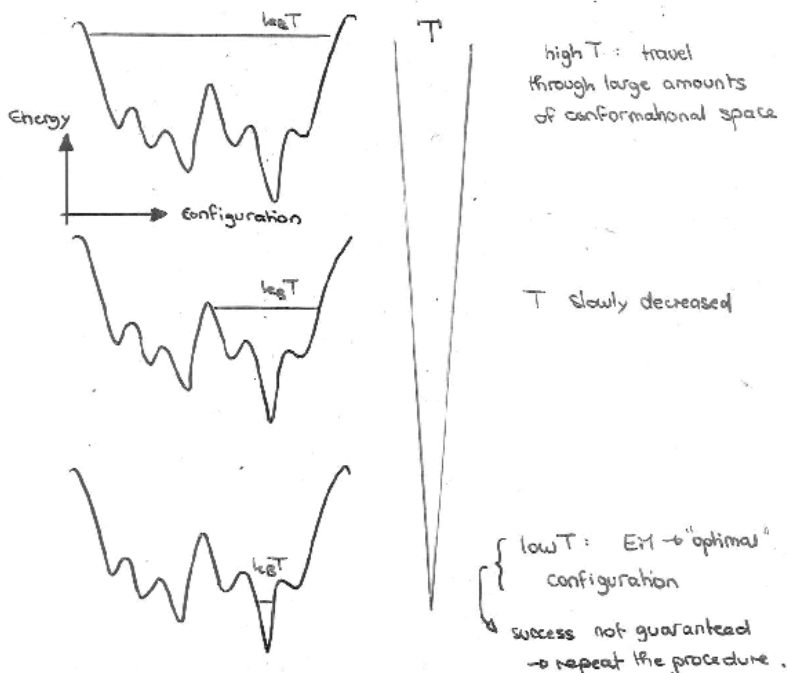 k_BT
T
high T : travel
through large amounts
of conformational space
Energy
Configuration
k_BT
T slowly decreased
k_BT
low T : EM → "optimal"
configuration
success not guaranteed
→ repeat the procedure.